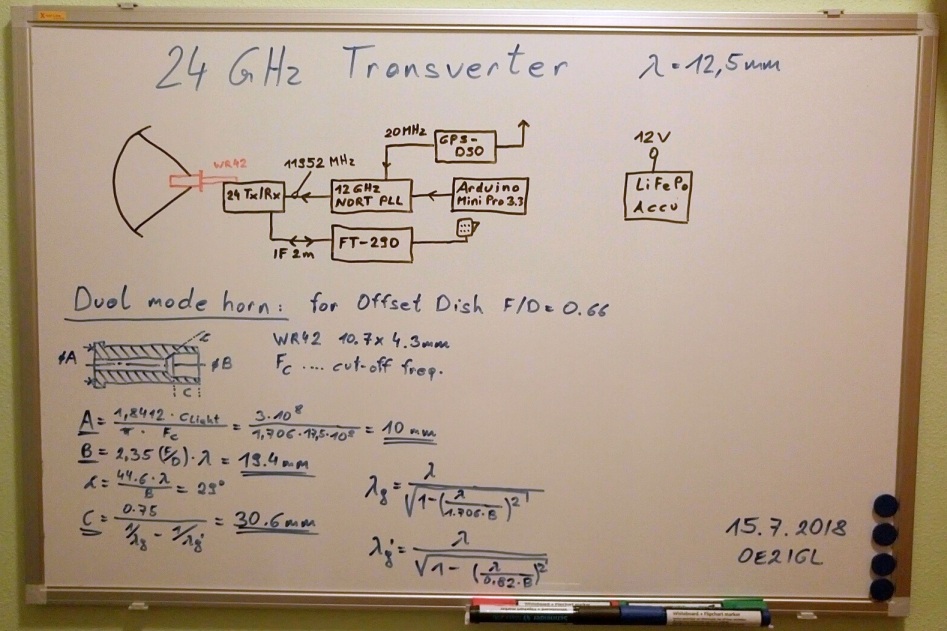 24 GHz Transverter λ = 12,5mm
WR42
11952 MHz
20MHz
GPS-
DSO
12V
24 Tx/Rx
12 GHz
NORT PLL
Arduino
Mini Pro 3.3
LiFePo
Accu
IF 2m
FT-290
Dual mode horn: for Offset Dish F/D = 0.66
WR42 10.7 x 4.3mm
Fc .... cut-off freq.
øA
α
øB
C
A = 1,8412 · cLight / π · Fc = 3·10⁸ / 1,706·17,5·10⁸ = 10 mm
B = 2,35 (F/D) · λ = 19.4mm
α = 44.6·λ / B = 29°
C = 0.75 / 1/λg - 1/λg' = 30.6mm
λg = λ / √1-(λ / 1.706·B)²
λg' = λ / √1-(λ / 0,82·B)²
15.7.2018
OE2IGL